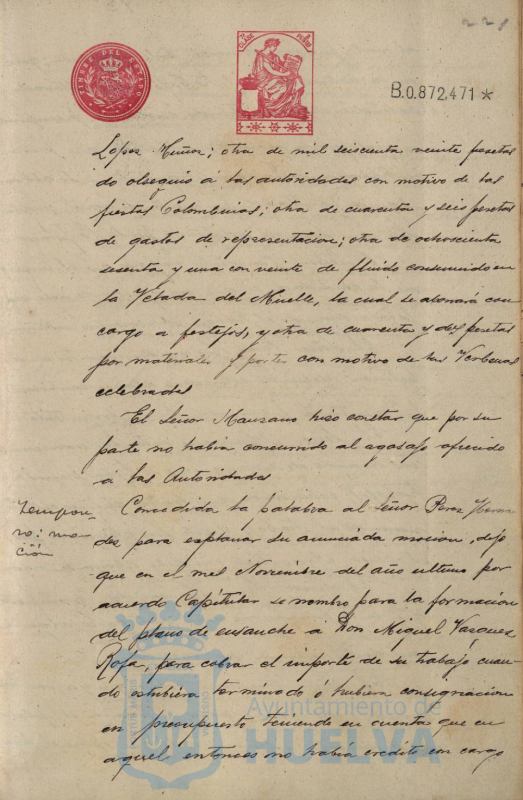 228
TIMBRE DEL ESTADO
CLASE
B.0.872,471 *
Lopez Muñoz; otra de mil seiscienta veinte pesetas
do obsequio á las autoridades con motivo de las
fiestas Colombinas; otra de cuarenta y seis pesetas
de gastos de representacion; otra de ochoscienta
sesenta y una con veinte de fluido consumido en
la Velada del Muelle, la cual se abonará con
cargo a festejos, y otra de cuarenta y dos pesetas
por materiales y portes con motivo de las Verbenas
celebradas
El Señor Manzano hizo constar que por su
parte no habia concurrido al agasajo ofrecido
á las Autoridades
Tempore-
ro: mo-
ción
Concedida la palabra al Señor Perez Hernan
des para explanar su anunciada mocion, dijo
que en el mes Noviembre del año ultimo por
acuerdo Capitular se nombro para la formacion
del plano de ensanche á Don Miguel Vasquez
Rofa, para cobrar el importe de su trabajo cuan-
do estubiera terminado ó hubiera consignacion
en presupuesto teniendo en cuenta que en
aquel entonces no habia credito con cargo
Ayuntamiento de
HUELVA